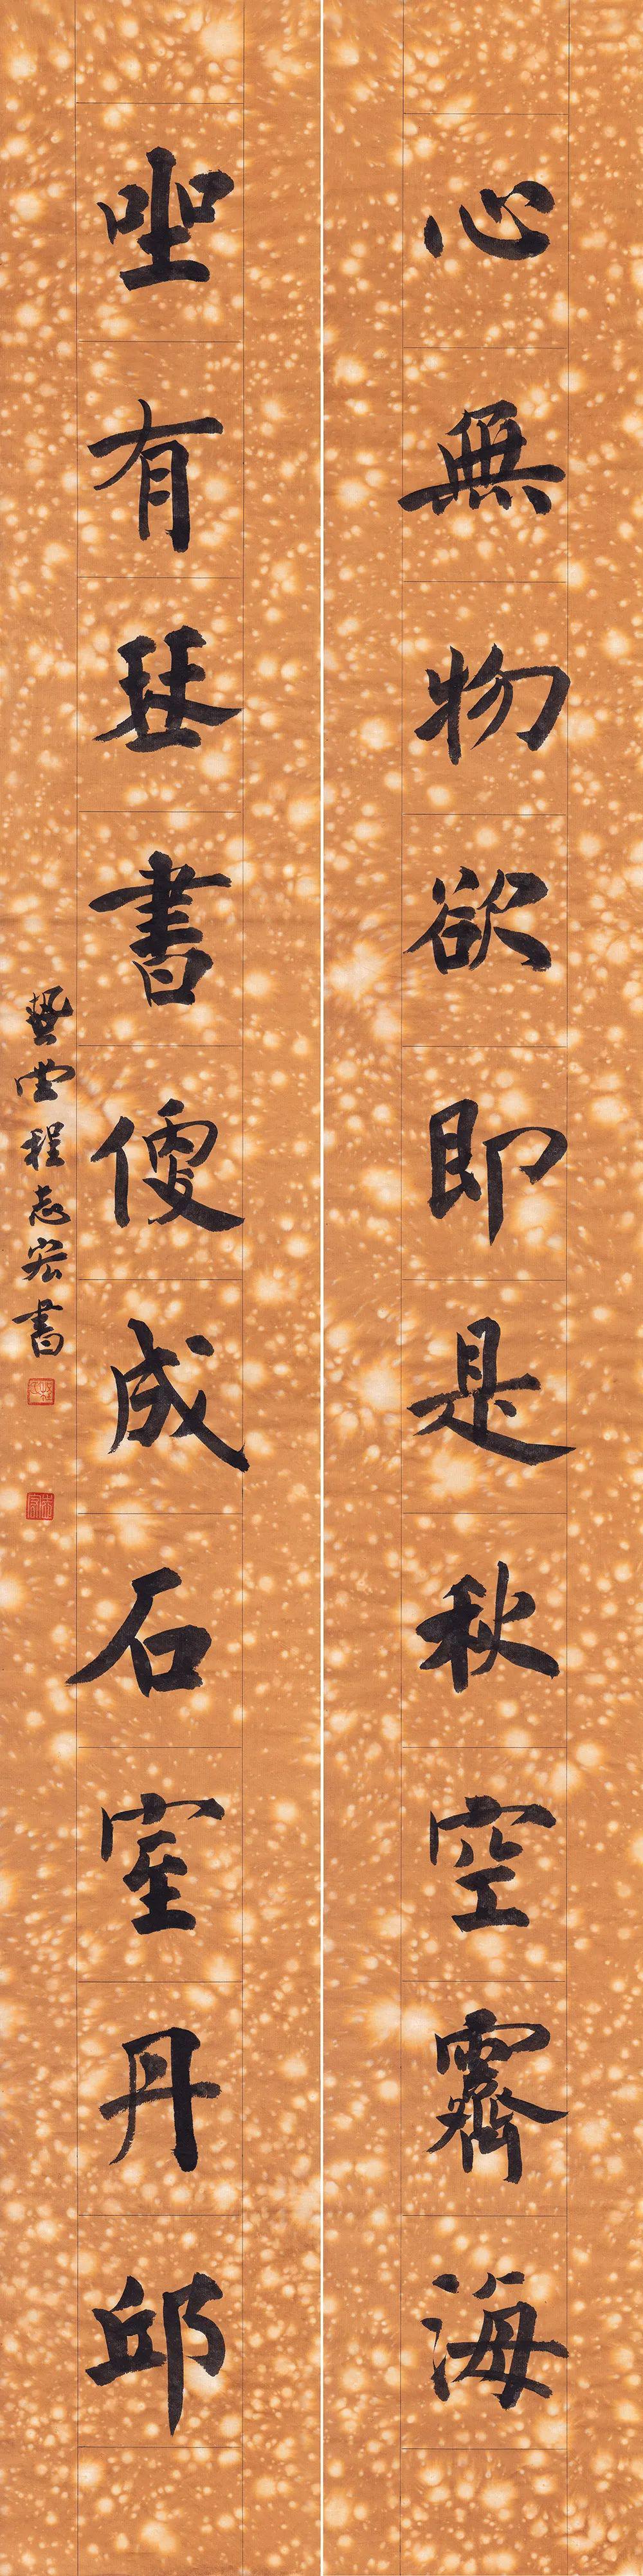 心無物欲即是秋空霽海
坐有琴書便成石室丹邱
藝由程志宏書